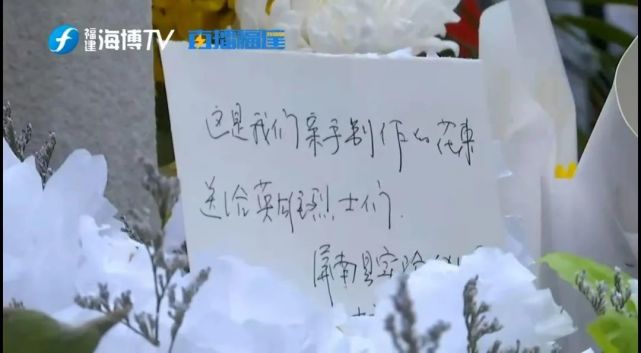 福建海博TV 直播福建
这是我们亲手制作的花束
送给英雄烈士们.
屏南县实验